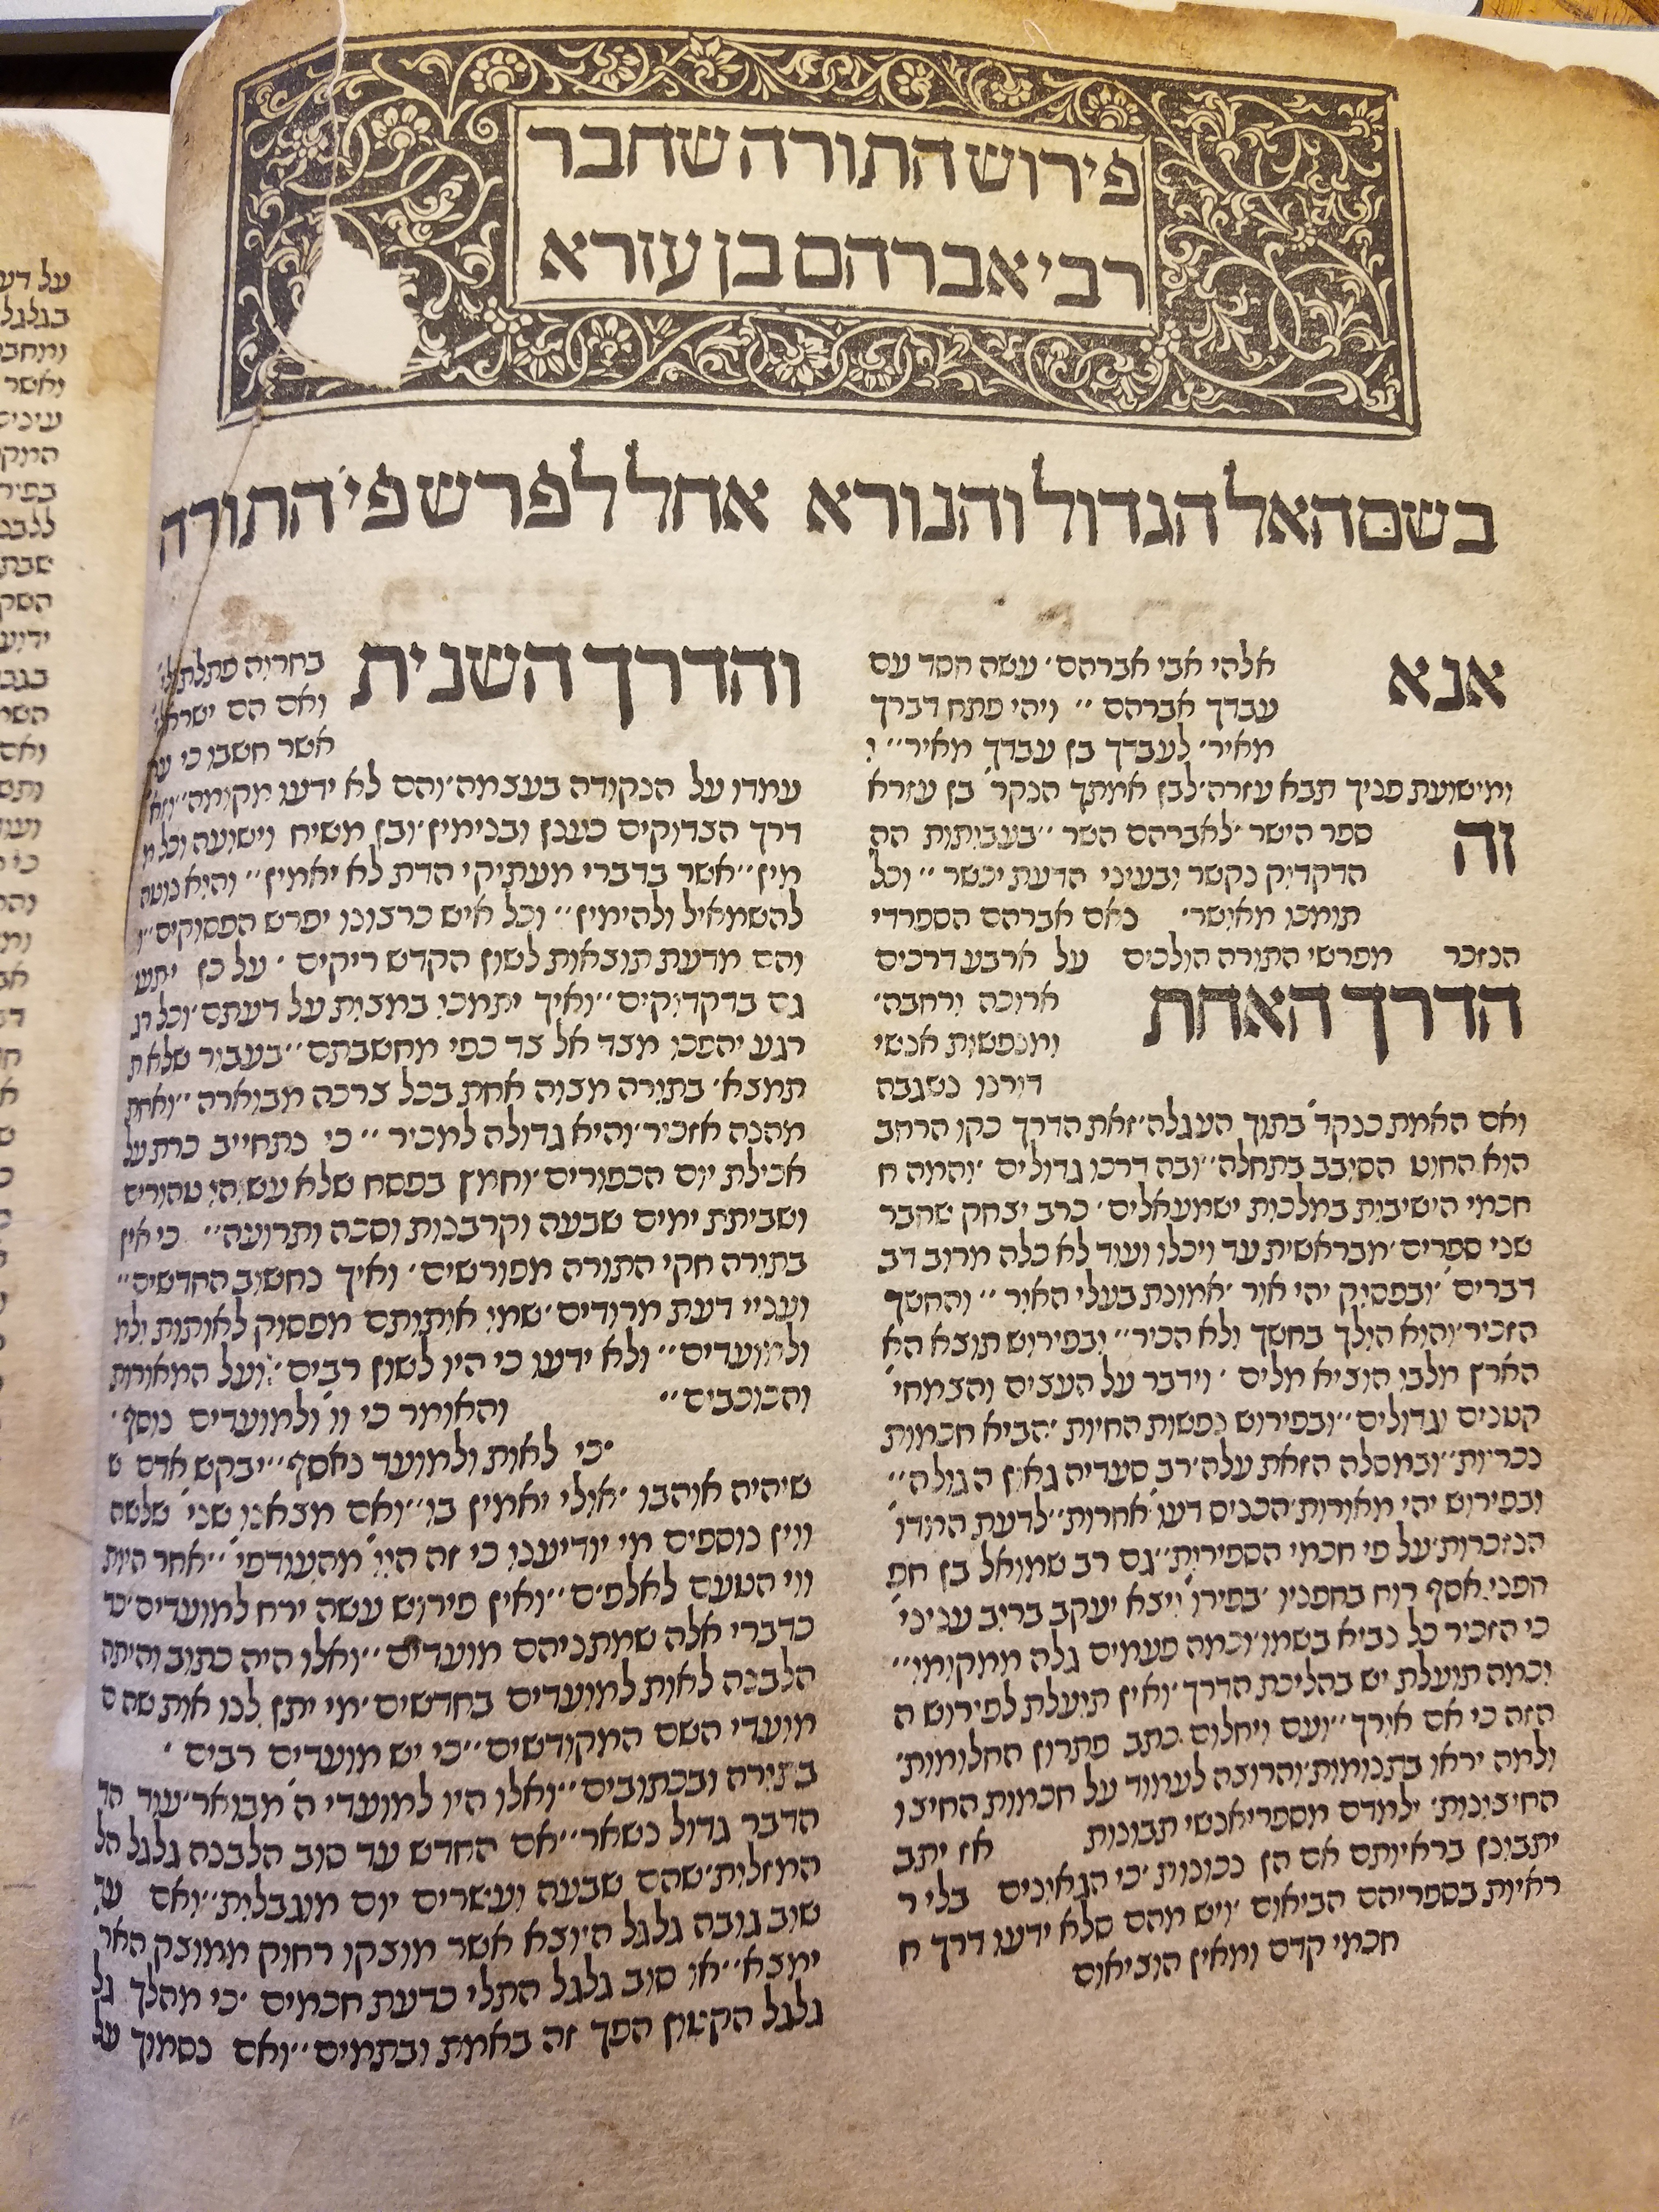 פירוש התורה שחבר
רבי אברהם בן עזרא
בשם האל הגדול והנורא אחל לפרש פי' התורה
אנא
אלהי אבי אברהם' עשה חסד עם
עבדך אברהם'' ויהי פתח דברך
מאיר' לעבדך בן עבדך מאיר'' ו
ומישועת פניך תבא עזרה'לבן אמתך הנקר' בן עזרא
זה
ספר הישר'לאברהם השר''בעבותות הה
הדקדוק נקשר ובעיני הדעת יכשר'' וכל
תומכו מאושר' נאם אברהם הספרדי
הנזכר מפרשי התורה הולכים על ארבע דרכים
הדרך האחת
ארוכה ורחבה'
ומנפשות אנשי
דורנו נשגבה
ואם האמת כנקד' בתוך העגלה'זאת הדרך כקו הרחב
הוא החוט הסובב בתחלה''ובה דרכו גדולים'והמה ח
חכמי הישיבות במלכות ישמעאלים' כרב יצחק שחבר
שני ספרים'מבראשית עד ויכלו ועוד לא כלה מרוב דב
דברים'ובפסוק יהי אור'אמונת בעלי האור'' והחשך
הזכיר'והוא הולך בחשך ולא הכיר''ובפירוש תוצא הא
הארץ מלבו הוציא מלים' וידבר על העצים והצמחי'
קטנים וגדולים''ובפירוש נפשות החיות'הביא חכמות
נכריות''ובמסלה הזאת עלה'רב סעדיה גאון הגולה''
ובפירוש יהי מאורות'הכניס דעו'אחרות''לדעת המדו'
הנזכרות'על פי חכמי הספירות''גם רב שמואל בן חפ
חפני'אסף רוח בחפניו'בפירו' ויצא יעקב ברוב עניני'
כי הזכיר כל נביא בשמו'וכמה פעמים גלה ממקומו''
וכמה תועלת יש בהליכת הדרך'ואין תועלת לפירוש ה
הזה כי אם אורך''ועם ויחלום כתב פתרון החלומות'
ולמה יראו בתנומות'והרוצה לעמוד על חכמות החיצו
החיצונות' ילמדם מספרי אנשי תבונות אז יתב
יתבונן בראיותם אם הן נכונות'כי הגאונים בלי ר
ראיות בספריהם הביאום'ויש מהם שלא ידעו דרך ח
חכמי קדם ומאין הוציאום
והדרך השנית
בחרוה פתלתלי'
ואם הם ישראלי'
אשר חשבו כי
עמדו על הנקודה בעצמה'והם לא ידעו מקומה''וזא'
דרך הצדוקים כענן ובנימין'ובן משיח וישועה וכל מ
מין''אשר בדברי מעתיקי הדת לא יאמין'' והוא נוטה
להשמאיל ולהימין'' וכל איש כרצונו יפרש הפסוקים''
והם מדעת תוצאות לשון הקדש ריקים' על כן יתעו
גם בדקדוקים''ואיך יתמכו במצות על דעתם'וכל רג
רגע יהפכו מצד אל צד כפי מחשבתם''בעבור שלא ת
תמצא' בתורה מצוה אחת בכל צרכה מבוארה''ואחת
מהנה אזכיר'והיא גדולה למכיר'' כי נתחייב כרת על
אכילת יום הכפורים'וחמץ בפסח שלא עשוהו טהורים
ושביתת ימים שבעה וקרבנות וסכה ותרועה'' כי אין
בתורה חקי התורה מפורשים' ואיך נחשוב החדשים''
ועניי דעת מרודים'שמו אותותם מפסוק לאותות ולמ
ולמועדים'' ולא ידעו כי היו לשון רבים'ועל המאורות
והכוכבים'' והאומר כי וו'ולמועדים נוסף'
כי לאות ולמועד נאסף''יבקש אדם ש
שיהיה אוהבו'אולי יאמין בו''ואם מצאנו שני' שלשה
ווין נוספים מי יודיענו כי זה הוו' מהעודפי'' אחר היות
ווי הטעם לאלפים''ואין פירוש עשה ירח למועדים'כד
כדברי אלה שמתניהם מועדים''ואלו היה כתוב והיתה
הלבנה לאות למועדים בחדשים'מי יתן לנו אות שהם
מועדי השם המקודשים''כי יש מועדים רבים'
בתורה ובכתובים''ואלו היו למועדי ה' מבואר'עוד הד
הדבר גדול נשאר''אם החדש עד סוב הלבנה גלגל הל
המזלות'שהם שבעה ועשרים יום מוגבלות''ואם עד
שוב גובה גלגל היוצא אשר מוצקו רחוק ממוצק האר
ימצא''או סוב גלגל התלי כדעת חכמים'כי מהלך גל
גלגל הקטן הפך זה באמת ובתמים''ואם נסמוך על